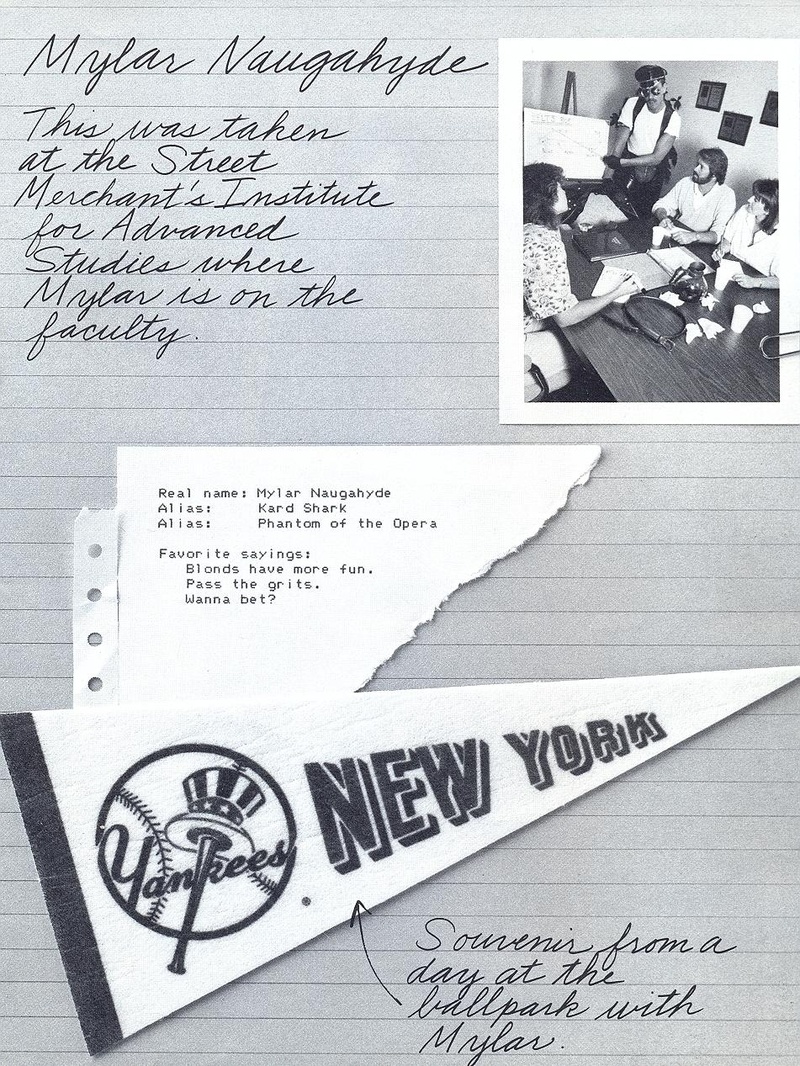 Mylar Naugahyde
This was taken
at the Street
Merchant's Institute
for Advanced
Studies where
Mylar is on the
faculty.
Real name: Mylar Naugahyde
Alias: Kard Shark
Alias: Phantom of the Opera
Favorite sayings:
Blonds have more fun.
Pass the grits.
Wanna bet?
Yankees
NEW YORK
Souvenir from a
day at the
ballpark with
Mylar.